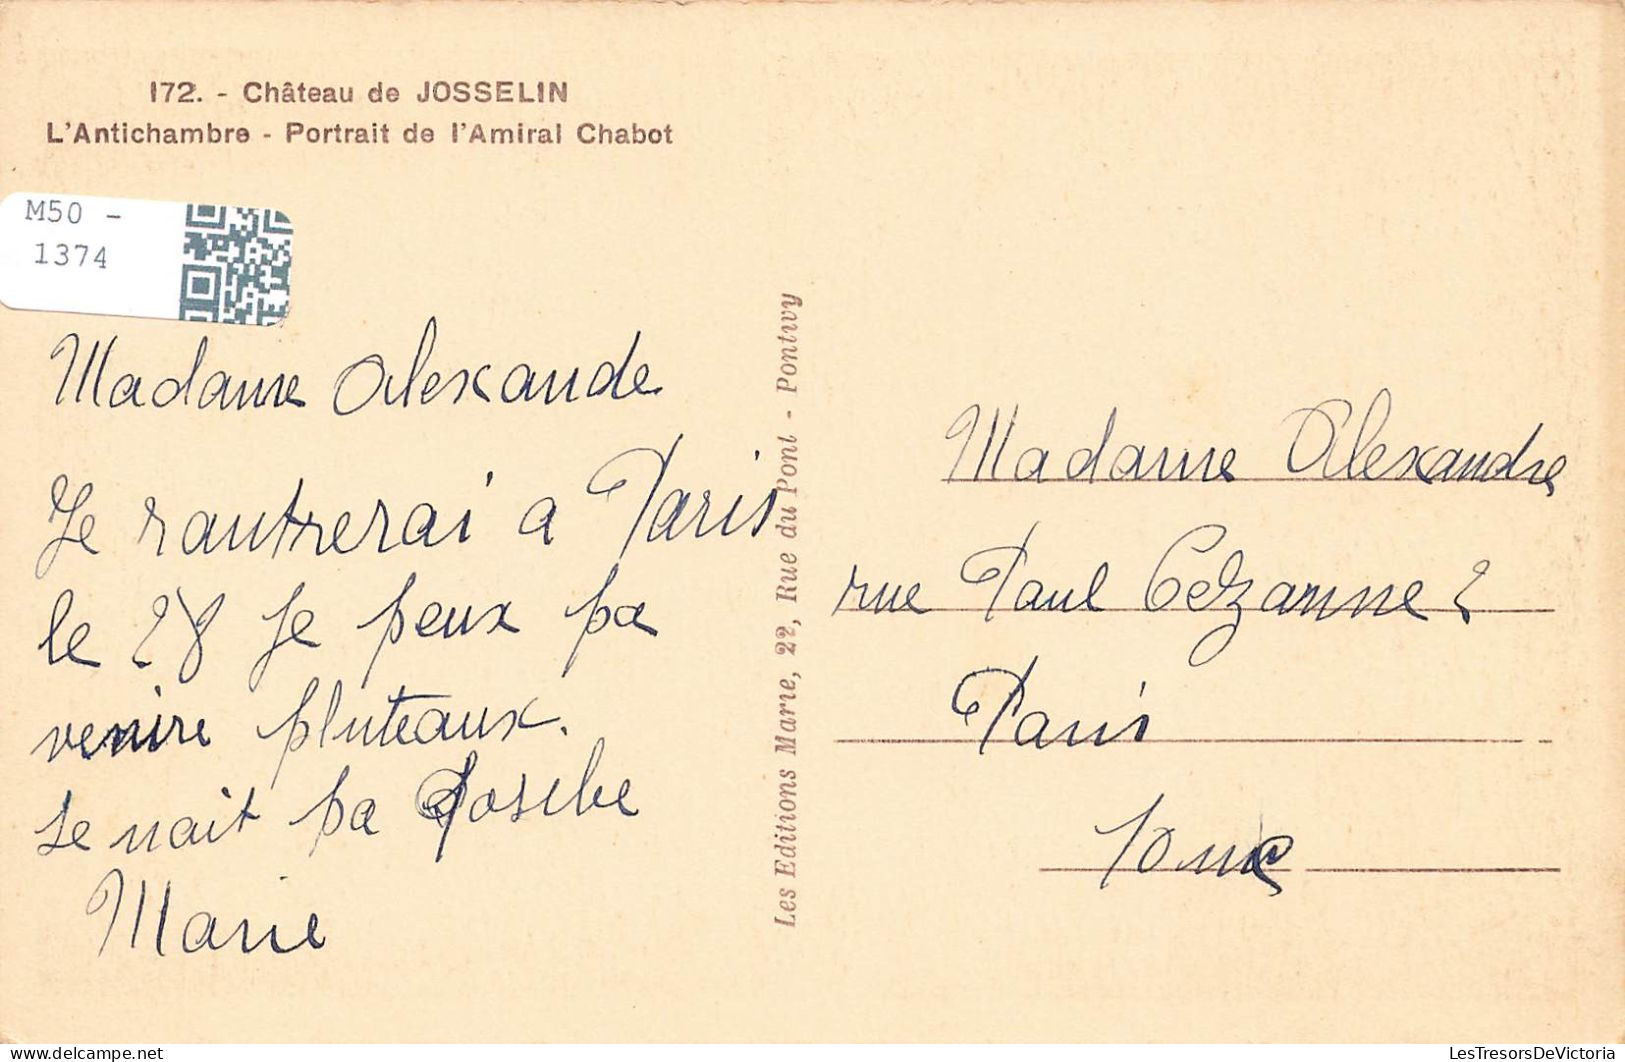 172. - Château de JOSSELIN
L'Antichambre - Portrait de l'Amiral Chabot
M50 -
1374
Madame Alexande
Je rantrerai a Paris
le 28 Je peux pa
venire pluteaux.
se nait pa Posibe
Marie
Les Editions Marie, 22, Rue du Pont - Pontivy
Madame Alexandre
rue Paul Cezanne 2
Paris
LesTresorsDeVictoria